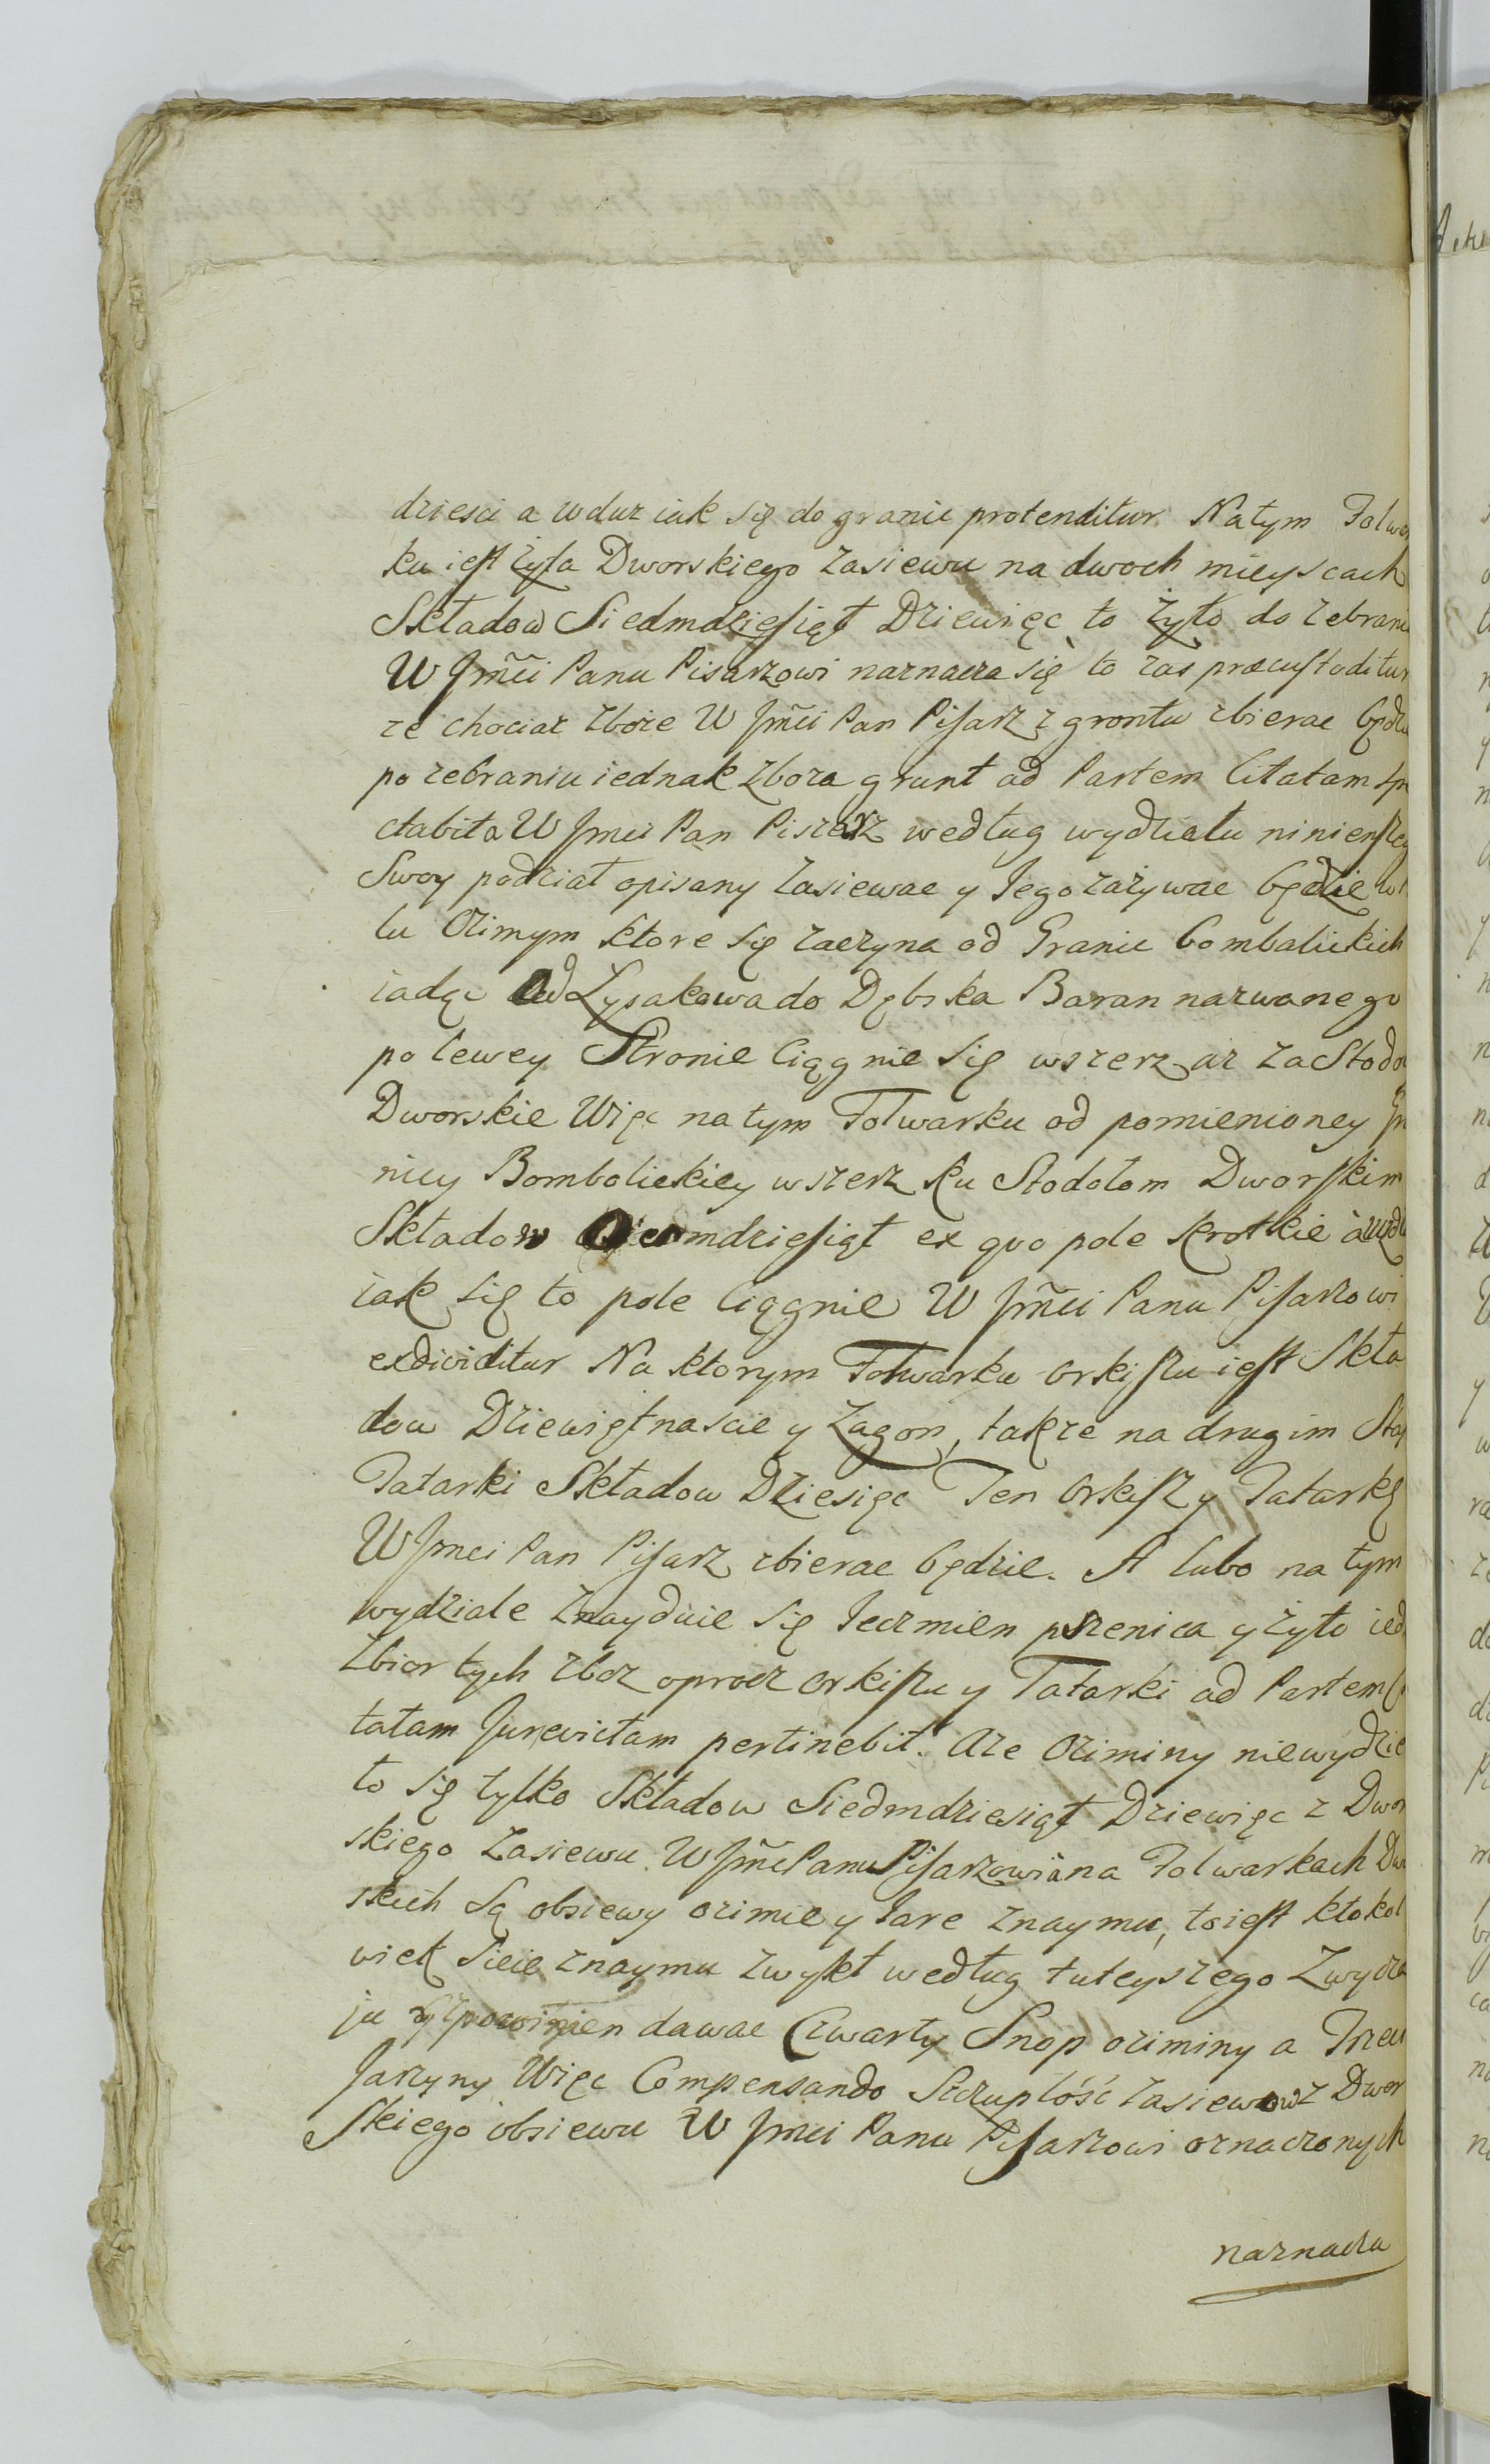 dziesci a wduz iak się do granic protenditur. Na tym Folwar
ku iest żyta Dworskiego zasiewu na dwoch mieyscach
Składow Siedmdziesiąt Dziewięc to żyto do zebrani
W Jmci Panu Pisarzowi naznacza się to zas præcustoditur
ze chociaz zboze W Jmci Pan Pisarz z grontu zbierac będzi
po zebraniu iednak zboza grunt ad Partem Citatam spe
ctabit a W Jmci Pan Pisarz według wydziału ninieyszeg
Swoy podział opisany zasiewac y Jego zazywac będzie w
lu Ozimym ktore się zaczyna od Granic Bombalickich
iadąc od Łysakowa do Dębska Baran nazwanego
po lewey Stronie Ciągnie się wszerz az za Stodo
Dworskie Więc na tym Folwarku od pomienioney Gra
nicy Bombolickiey wszerz ku Stodołom Dworskim
Składow Osiemdziesiąt ex quo pole krotkie a wzdłu
iak się to pole Ciągnie W Jmci Panu Pisarzowi
exdividitur Na ktorym Folwarku orkiszu iest Skła
dow Dziewiętnascie y Zagon, także na drugim Sta
Tatarki Składow Dziesięc Ten Orkisz y Tatarkę
W Jmci Pan Pisarz zbierac będzie. A lubo na tym
wydziale znayduie się Jeczmien pszenica y żyto ied
Zbior tych zboz oprocz orkiszu y Tatarki ad Partem Ci
tatam Jurevictam pertinebit. Aze Oziminy niewydzie
to się tylko Składow Siedmdziesiąt Dziewięc z Dwor
skiego zasiewu W Jmci Panu Pisarzowi a na Folwarkach Dwo
skich Są obsiewy ozimie y Jare z naymu, to iest ktokol
wiek Sieie z naymu zwykł według tuteyszego Zwycza
ju y powinien dawac Czwarty Snop oziminy a Trzeci
Jarzyny Więc Compensando Szczupłość zasiewow z Dwor
Skiego obsiewu W Jmci Panu Pisarzowi oznaczonych
naznacza